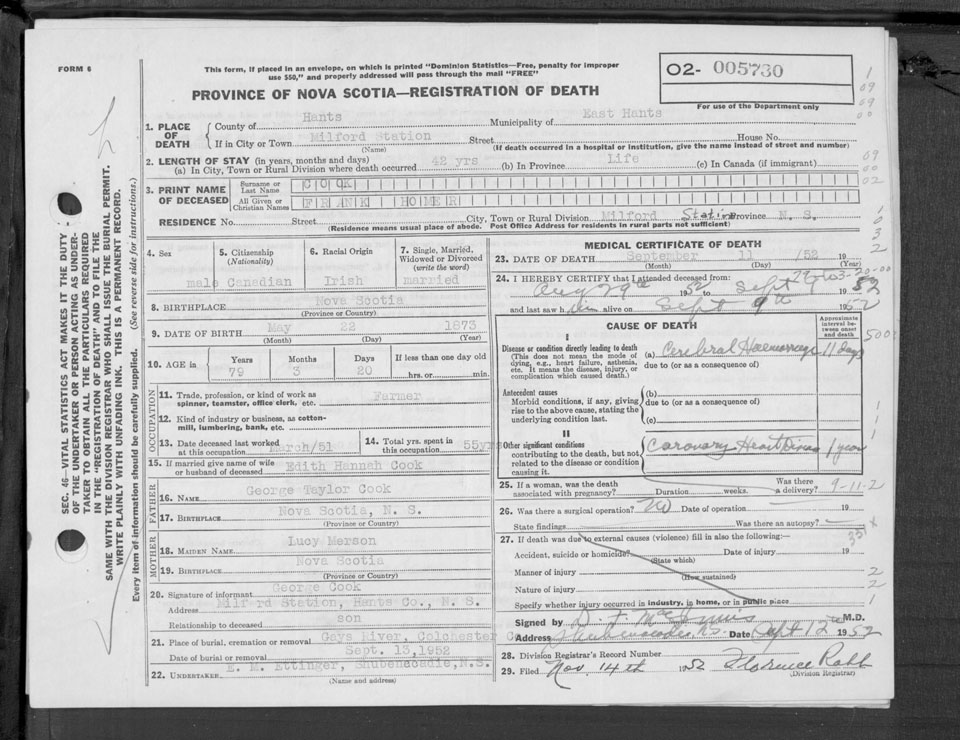 FORM 6
This form, if placed in an envelope, on which is printed "Dominion Statistics—Free, penalty for improper
use $50," and properly addressed will pass through the mail "FREE"
PROVINCE OF NOVA SCOTIA—REGISTRATION OF DEATH
O2- 005730
For use of the Department only
1. PLACE OF DEATH
County of Hants Municipality of East Hants
If in City or Town Milford Station Street House No.
(Name) (If death occurred in a hospital or institution, give the name instead of street and number)
2. LENGTH OF STAY (in years, months and days)
(a) In City, Town or Rural Division where death occurred 42 yrs (b) In Province Life (c) In Canada (if immigrant)
3. PRINT NAME OF DECEASED
Surname or Last Name COOK
All Given or Christian Names FRANK HOMER
RESIDENCE No. Street City, Town or Rural Division Milford Station Province N. S.
(Residence means usual place of abode. Post Office Address for residents in rural parts not sufficient)
4. Sex 5. Citizenship (Nationality) 6. Racial Origin 7. Single, Married, Widowed or Divorced (write the word)
male Canadian Irish married
8. BIRTHPLACE Nova Scotia
(Province or Country)
9. DATE OF BIRTH May 22 1873
(Month) (Day) (Year)
10. AGE in Years Months Days If less than one day old
79 3 20 hrs. or min.
OCCUPATION
11. Trade, profession, or kind of work as spinner, teamster, office clerk, etc. Farmer
12. Kind of industry or business, as cotton-mill, lumbering, bank, etc.
13. Date deceased last worked at this occupation March/51
14. Total yrs. spent in this occupation 55yrs
15. If married give name of wife or husband of deceased Edith Hannah Cook
FATHER
16. NAME George Taylor Cook
17. BIRTHPLACE Nova Scotia, N. S.
(Province or Country)
MOTHER
18. MAIDEN NAME Lucy Merson
19. BIRTHPLACE Nova Scotia
(Province or Country)
20. Signature of informant George Cook
Address Milford Station, Hants Co., N. S.
Relationship to deceased son
21. Place of burial, cremation or removal Gays River, Colchester Co
Date of burial or removal Sept. 13,1952
22. UNDERTAKER E. E. Ettinger, Shubenacadie,N.S.
(Name and address)
MEDICAL CERTIFICATE OF DEATH
23. DATE OF DEATH September 11 /52 19
(Month) (Day) (Year)
24. I HEREBY CERTIFY that I attended deceased from:
Aug 29th 1952 to Sept 1952
and last saw him alive on Sept 9th 1952
CAUSE OF DEATH
Approximate interval between onset and death
I
Disease or condition directly leading to death
(This does not mean the mode of dying, e.g., heart failure, asthenia, etc. It means the disease, injury, or complication which caused death.)
(a) Cerebral Haemorrage 11 days
due to (or as a consequence of)
Antecedent causes
Morbid conditions, if any, giving rise to the above cause, stating the underlying condition last.
(b)
due to (or as a consequence of)
(c)
II
Other significant conditions
contributing to the death, but not related to the disease or condition causing it.
Coronary Heart Disease 1 year
25. If a woman, was the death associated with pregnancy? Duration weeks. Was there a delivery?
9-11-2
26. Was there a surgical operation? No Date of operation 19
State findings Was there an autopsy?
27. If death was due to external causes (violence) fill in also the following:—
Accident, suicide or homicide? Date of injury 19
(State which)
Manner of injury
(How sustained)
Nature of injury
Specify whether injury occurred in industry, in home, or in public place
Signed by D. F. MacInnis M.D.
Address Shubenacadie N.S. Date Sept 12 1952
28. Division Registrar's Record Number
29. Filed Nov. 14th 1952 Florence Robb
(Division Registrar)
SEC. 46—VITAL STATISTICS ACT MAKES IT THE DUTY
OF THE UNDERTAKER OR PERSON ACTING AS UNDER-
TAKER TO OBTAIN ALL THE PARTICULARS REQUIRED
IN THE "REGISTRATION OF DEATH" AND TO FILE THE
SAME WITH THE DIVISION REGISTRAR WHO SHALL ISSUE THE BURIAL PERMIT.
WRITE PLAINLY WITH UNFADING INK. THIS IS A PERMANENT RECORD.
Every item of information should be carefully supplied. (See reverse side for instructions.)